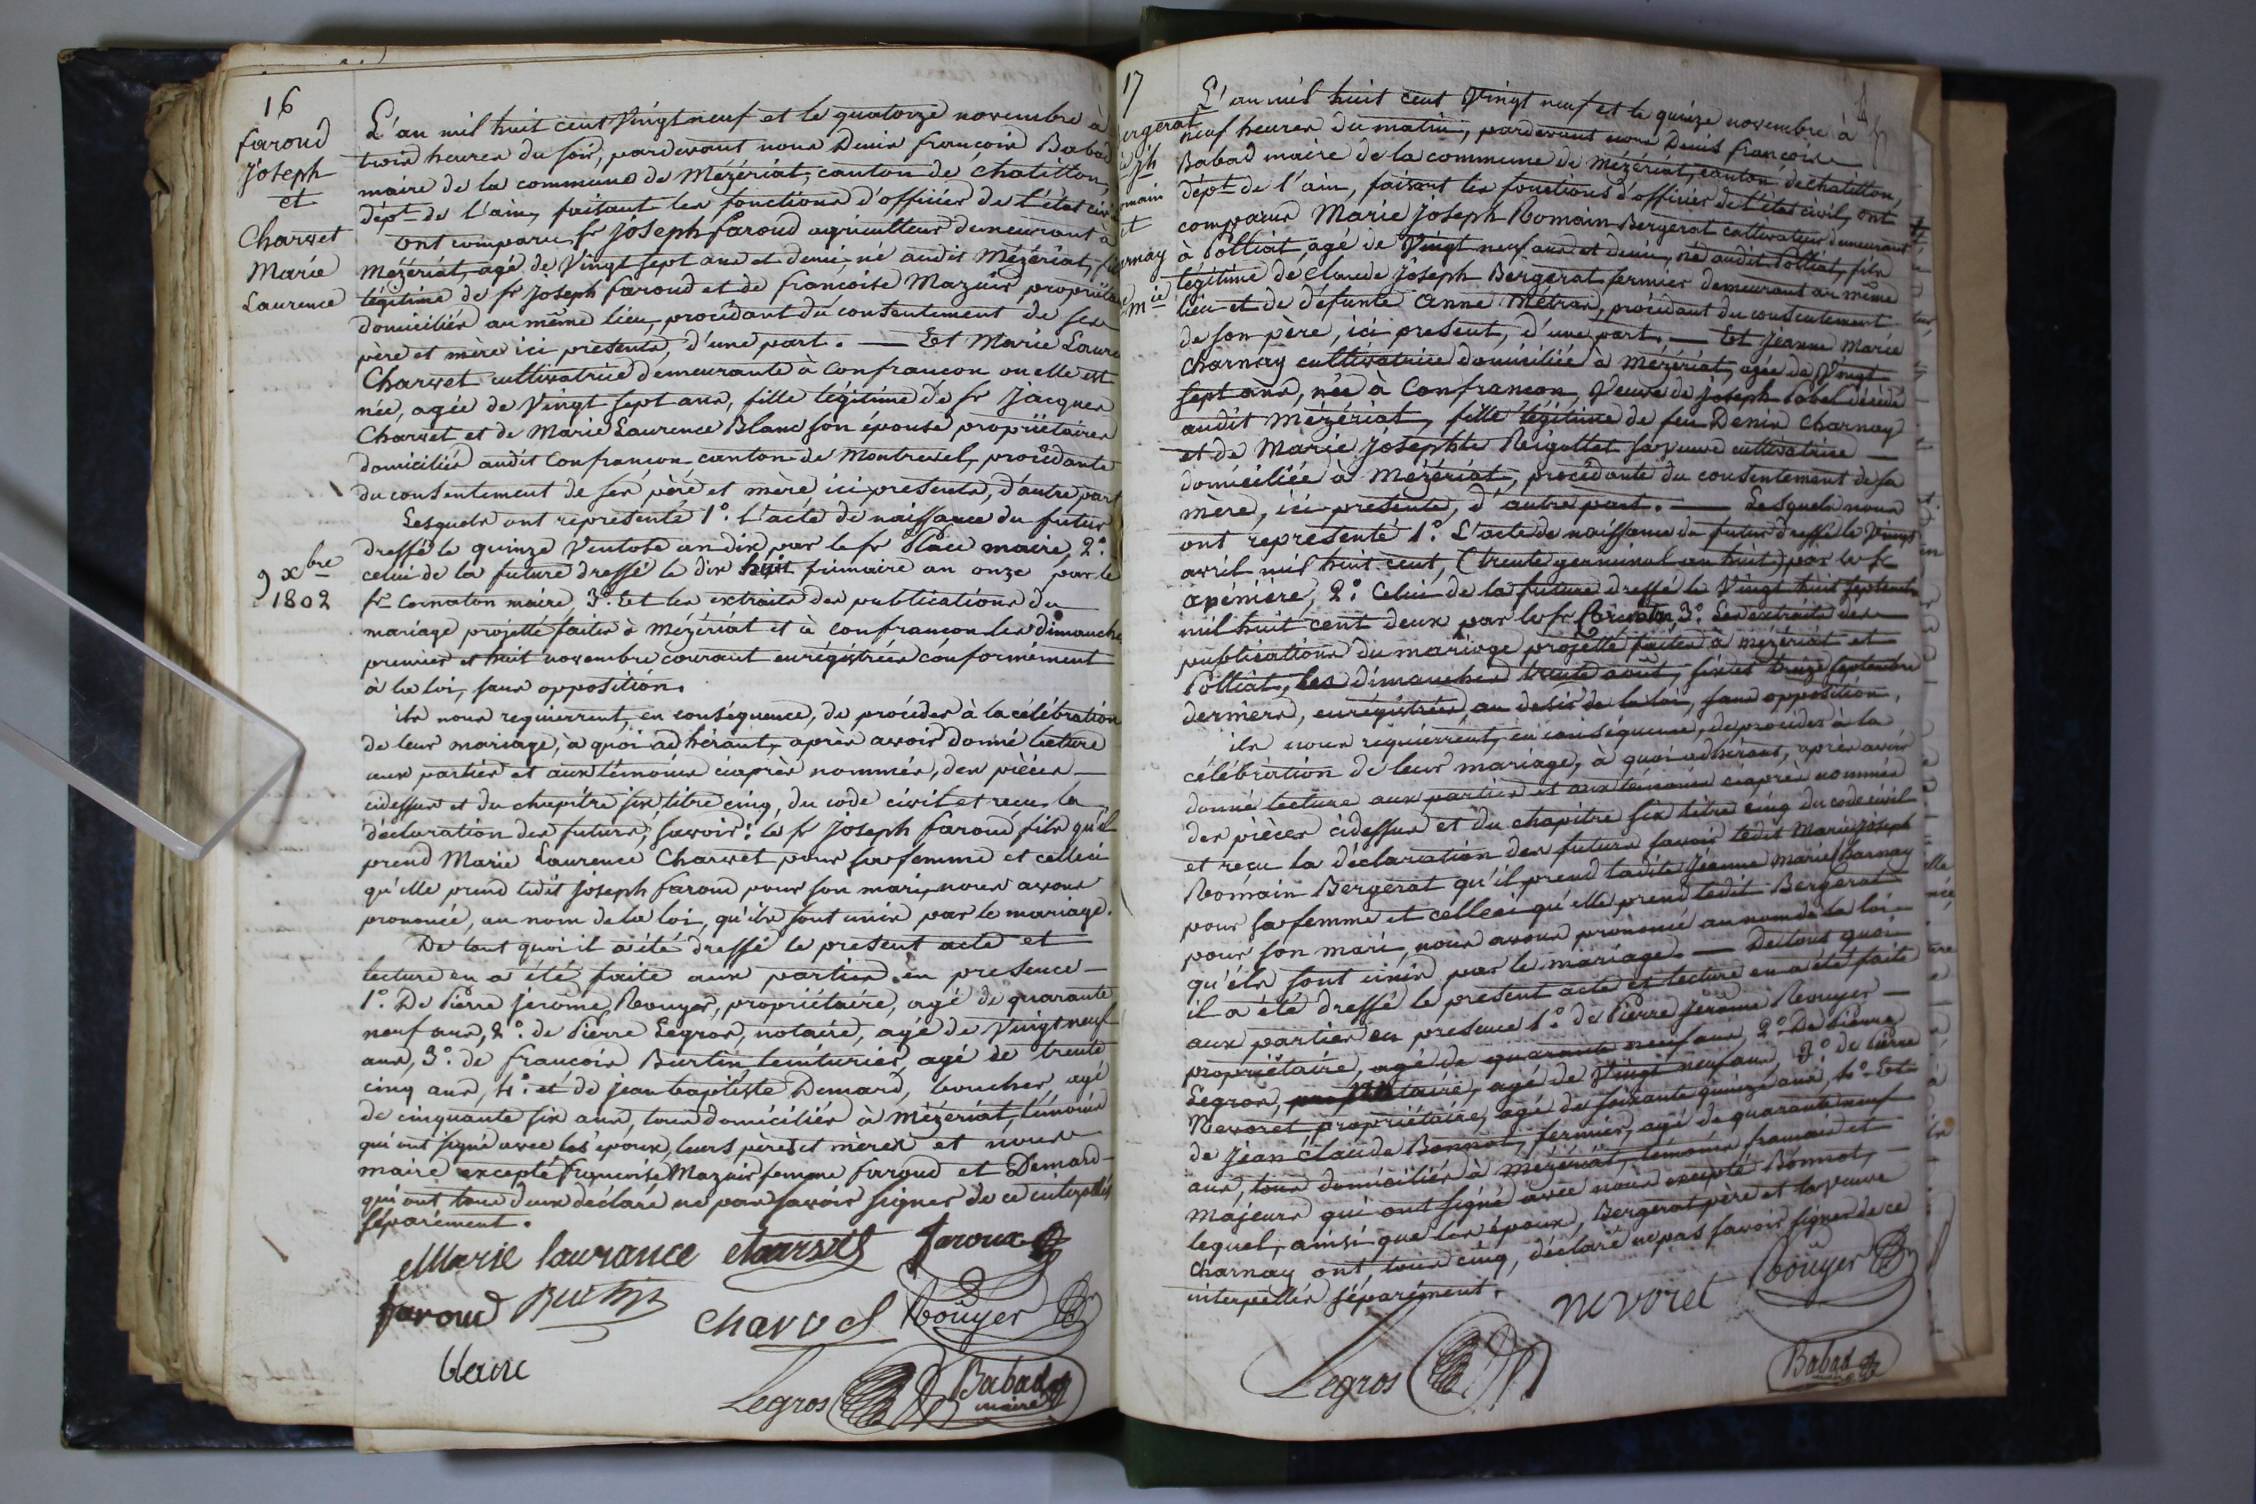 16
faroud
Joseph
et
Charvet
Marie
Laurence
L'an mil huit cent Vingt neuf et le quatorze novembre à
trois heures du soir, pardevant nous Denis François Babad
maire de la commune de Mézériat, canton de Chatillon,
dépt de l'ain, faisant les fonctions d'officier de l'état civil
ont comparu sr Joseph faroud agriculteur demeurant à
Mézériat, agé de Vingt sept ans et demi, né audit Mézériat, fils
légitime de sr Joseph faroud et de françoise Mazuir propriétaires
domiciliés au même lieu, procédant du consentement de ses
père et mère ici présents, d'une part. — Et Marie Laurence
Charvet cultivatrice demeurante à Confrancon ou elle est
née, agée de Vingt sept ans, fille légitime de sr Jacques
Charvet et de Marie Laurence Blanc son épouse propriétaires
domiciliés audit Confrancon canton de Montrevel, procédante
du consentement de ses père et mère ici présents, d'autre part
Lesquels ont représenté 1.° L'acte de naissance du futur
dressé le quinze Ventose an dix par le sr Place maire, 2.°
9 xbre
1802
celui de la future dressé le dix huit frimaire an onze par le
sr Cornaton maire, 3.° Et les extraits des publications du
mariage projetté faites à Mézériat et à confrancon les dimanche
premier et huit novembre courant enrégistrées conformément
à la loi, sans opposition.
ils nous requierrent, en conséquence, de procéder à la célébration
de leur mariage, à quoi adhérant, après avoir donné lecture
aux parties et aux témoins ciaprès nommés, des pièces —
cidessus et du chapitre six titre cinq, du code civil et recu la
déclaration des futurs, savoir: le sr Joseph faroud fils qu'il
prend Marie Laurence Charvet pour sa femme et celleci
qu'elle prend ledit Joseph faroud pour son mari, nous avons
prononcé, au nom de la loi, qu'ils sont unis par le mariage.
De tout quoi il a été dressé le present acte et
lecture en a été faite aux parties. en presence —
1.° De Pierre Jerôme Rouyer, propriétaire, agé de quarante
neuf ans, 2.° de Pierre Legros, notaire, agé de Vingt neuf
ans, 3.° de françois Burtin, teinturier, agé de trente
cinq ans, 4.° et de jean baptiste Demard, boucher, agé
de cinquante six ans, tous domiciliés à Mézériat, témoins
qui ont signé avec les époux, leurs pères et mères et nous
maire excepté françoise Mazuir femme faroud et Demard
qui ont tous deux déclaré ne pas savoir signer de ce interpellés
séparément.
Marie laurance charvet faroux
faroud Burtin charvet Rouyer
blanc
Legros Babad
maire
17
Bergerat
Jph
Romain
et
Charnay
Mie
L'an mil huit cent Vingt neuf et le quinze novembre à
neuf heures du matin, pardevant nous Denis françois
Babad maire de la commune de Mézériat, canton de chatillon,
dépt de l'ain, faisant les fonctions d'officier de l'état civil, ont
comparus Marie Joseph Romain Bergerat cultivateur demeurant
à Polliat, agé de Vingt neuf ans et demi, né audit Polliat, fils
légitime de Claude Joseph Bergerat fermier demeurant au même
lieu et de défunte Anne Metras, procédant du consentement
de son père, ici présent, d'une part. — Et Jeanne Marie
Charnay cultivatrice domiciliée à Mézériat, agée de Vingt
sept ans, née à Confrancon, Veuve de Joseph Pobel décédé
audit Mézériat, fille légitime de feu Denis Charnay
et de Marie Josephte Rigottet sa veuve cultivatrice —
domiciliée à Mézériat, procédante du consentement de sa
mère, ici présente, d'autre part. — Lesquels nous
ont représenté 1.° L'acte de naissance du futur dressé le Vingt
avril mil huit cent, (trente germinal an huit) par le sr
apeniere, 2.° Celui de la future dressé le Vingt huit septembre
mil huit cent deux par le sr Cornaton, 3.° Les extraits des
publications du mariage projetté faites à mézériat et
Polliat, les dimanches trente août, six et treize septembre
derniers, enrégistrées au desir de la loi, sans opposition.
ils nous requierrent, en conséquence, de procéder à la
célébration de leur mariage, à quoi adhérant, après avoir
donné lecture aux parties et aux témoins ciaprès nommés
des pièces cidessus et du chapitre six titre cinq du code civil
et recu la déclaration des futurs savoir ledit Marie Joseph
Romain Bergerat qu'il prend ladite Jeanne Marie Charnay
pour sa femme et celleci qu'elle prend ledit Bergerat
pour son mari, nous avons prononcé au nom de la loi
qu'ils sont unis par le mariage. — De tout quoi
il a été dressé le present acte et lecture en a été faite
aux parties en presence 1.° de Pierre Jerôme Rouyer —
propriétaire, agé de quarante neuf ans, 2.° De Pierre
Legros, notaire, agé de Vingt neuf ans, 3.° de Pierre
Nevoret, propriétaire, agé de soixante quinze ans, 4.° Et
de Jean Claude Bonnot, fermier, agé de quarante neuf
ans, tous domiciliés à Mézériat, témoins français et
majeurs qui ont signé avec nous excepté Bonnot, —
lequel, ainsi que les époux, Bergerat père et la veuve
Charnay ont, tous cinq, déclaré ne pas savoir signer de ce
interpellés séparément.
nevoret Rouyer
Legros Babad